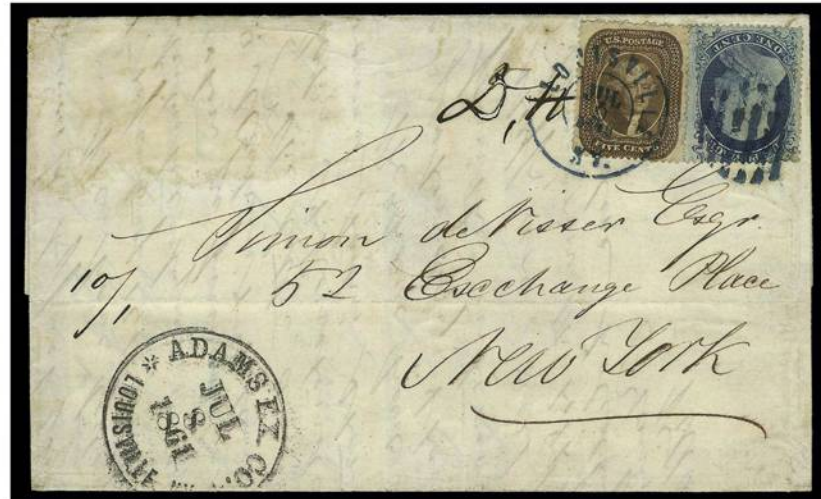 U.S. POSTAGE
FIVE CENTS
ONE CENT
LOUISVILLE
JUL
KY.
D, H
Simon de Visser Esqr.
10/1
52 Exchange Place
New York
ADAMS EX. CO.
JUL
8
1861
LOUISVILLE